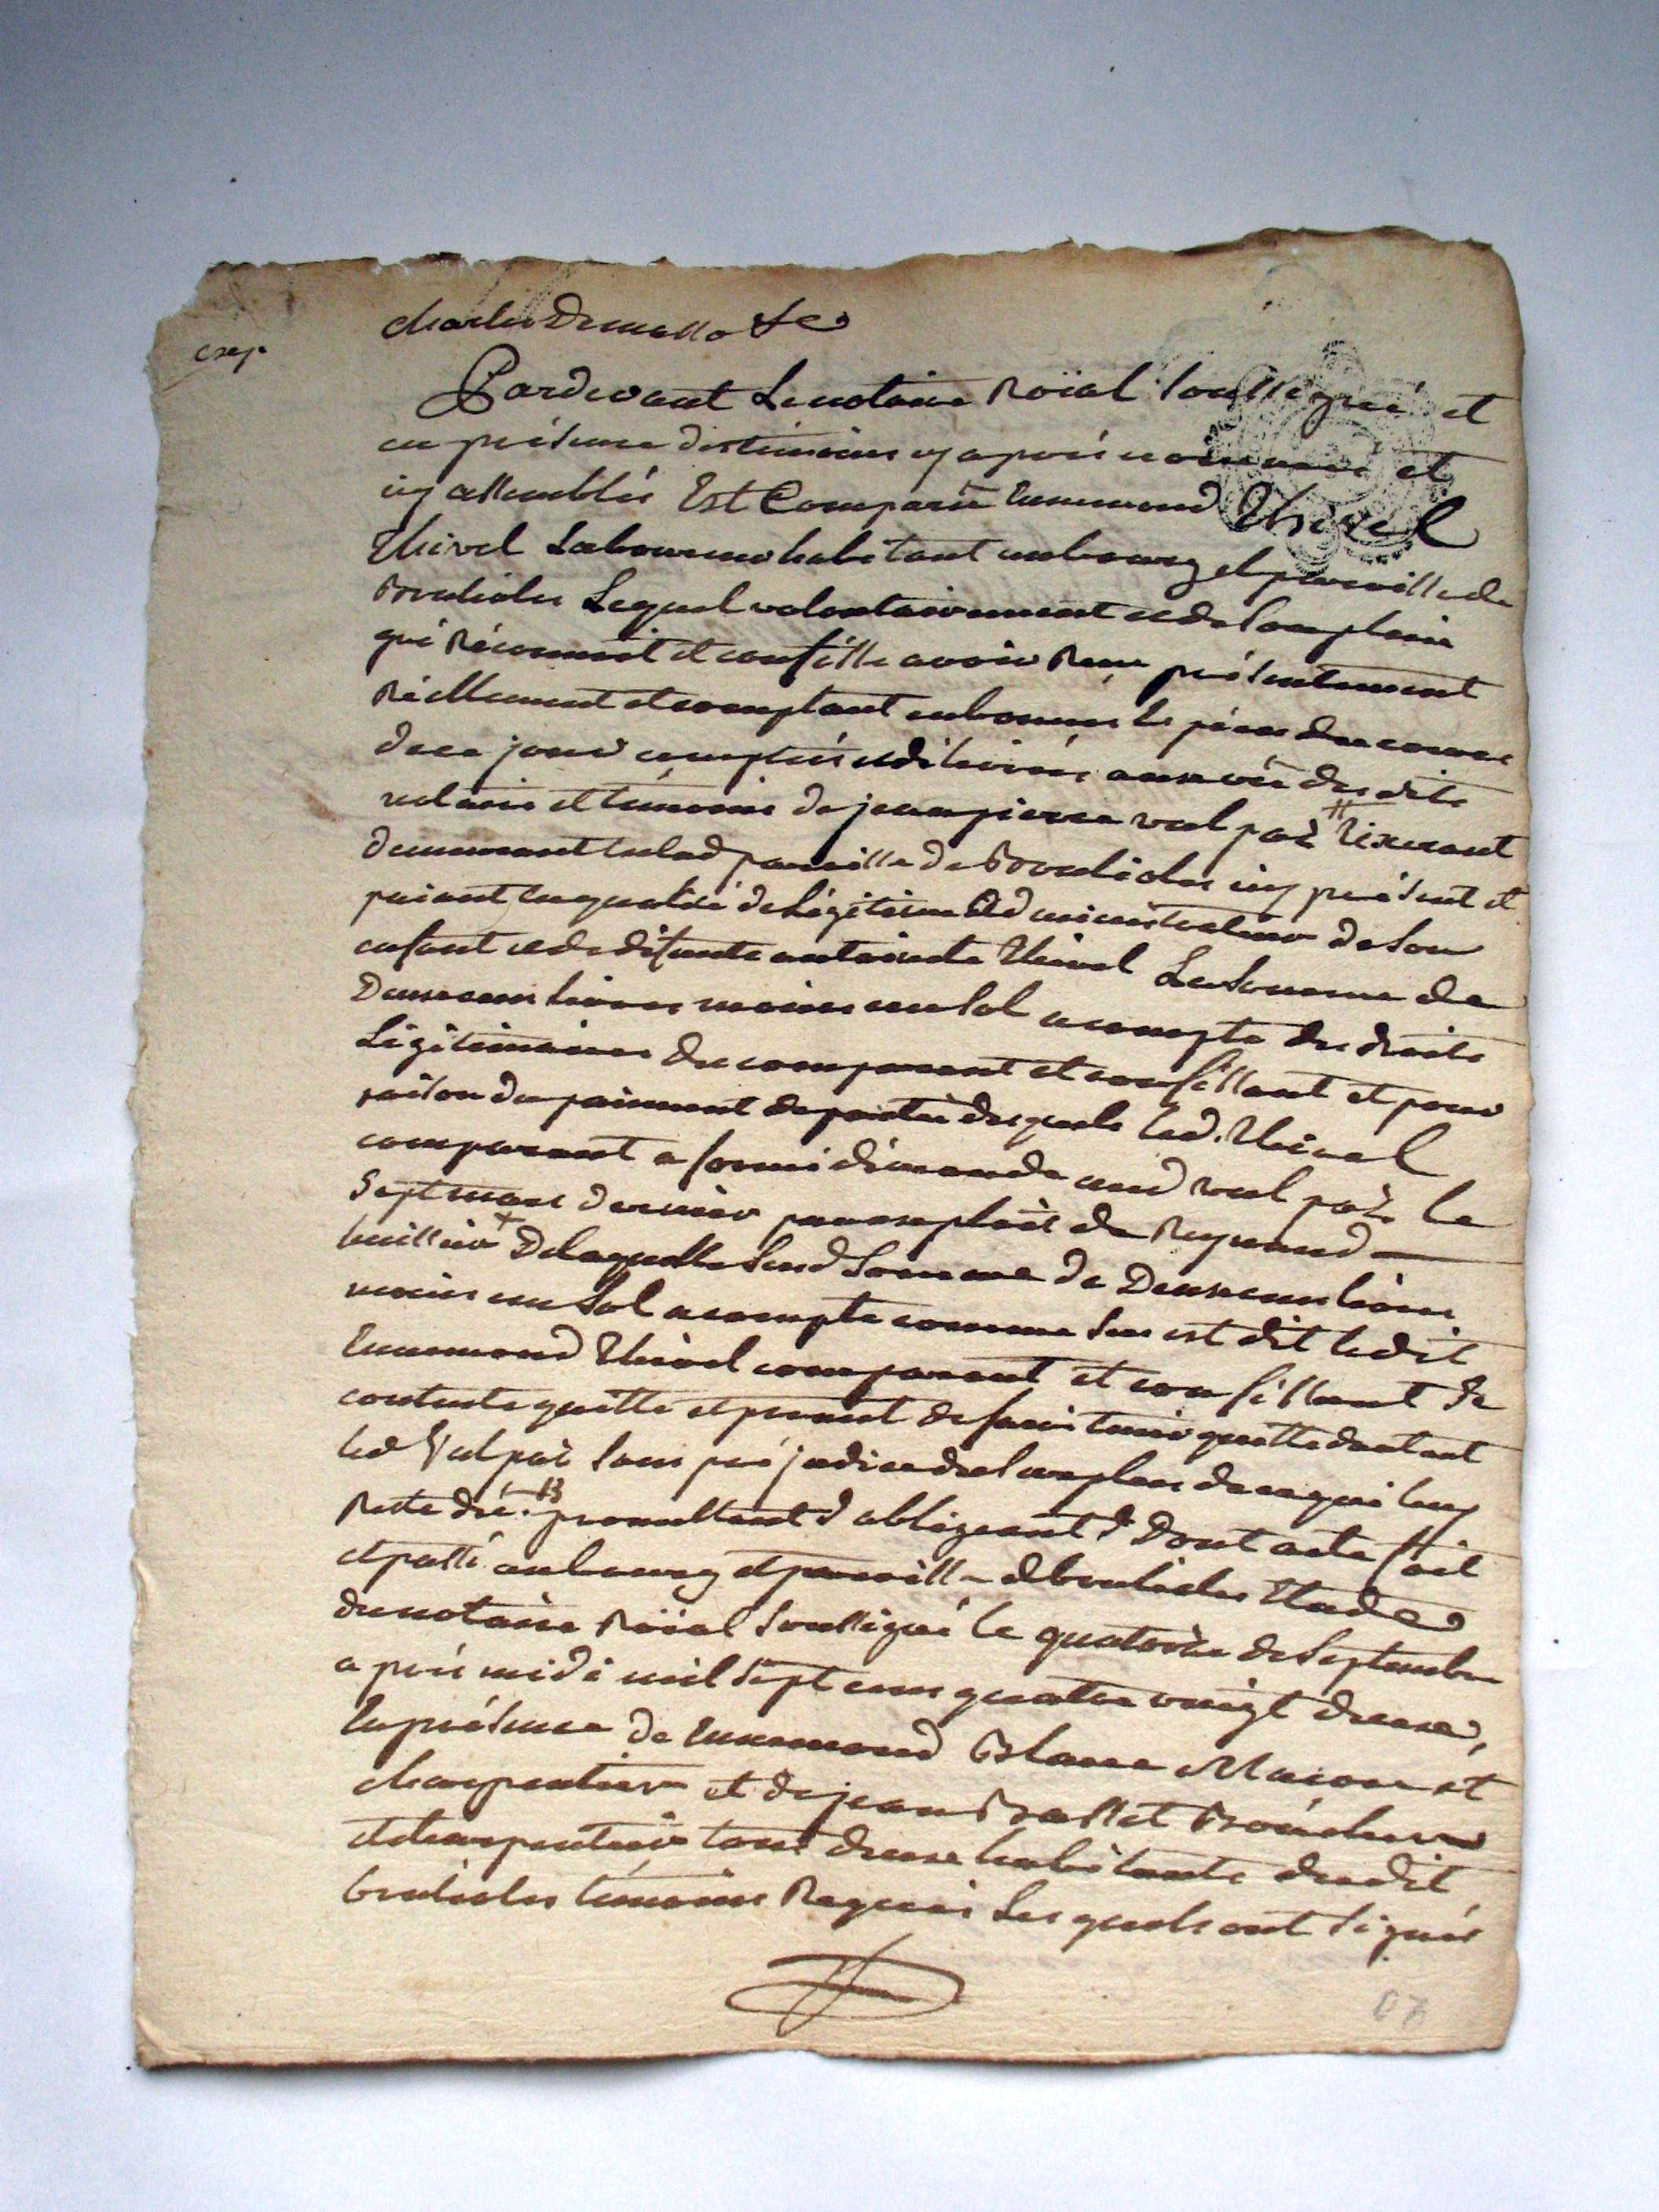 exep.
Pardevant Le notaire Roïal Soussigné et
en présence des témoins cy aprés nommés et
icy assemblés Est Comparu Ennemond Thivel
Thivel Laboureur habitant au bourg et paroisse de
Lequel volontairement et de Son plein
gré Reconnoit et confesse avoir Reçu présentement
Réellement et comptant en bonnes Es pièces du cours
de ce jour comptées et délivrées aux vûe des dits
notaire et témoins de jean pierre valpaz # Tixerant
demeurant paroisse de icy présent et
paiant en qualité de Légitime Administrateur de Son
enfant et de deffunte antoinette Thivel La Somme de
Deux cens livres moins un Sol a compte des droits
Légitimaires du comparant et confessant et pour
raison du paiement de partie desquels led. Thivel
comparant a formé démande aud valpaz le
Sept mars dernier par exploit de Reynaud
huissier + De laquelle Susd Somme de Deux cens livres
moins un Sol a compte comme Sus est dit ledit
Ennemond Thivel comparant et confessant Se
contente quitte et promet de faire tenir quitte d'autant
led Valpaz Sans préjudice du Surplus de ce qui luy
Reste dû. B promettant & obligeant & Dont acte fait
et passé au bourg et paroisse de Etude
du notaire Roïal Soussigné le quatorze de Septembre
aprés midi mil Sept cens quatre vingt douze,
En présence de Ennemond Blanc Maçon et
charpentier et de jean
et charpentier tous deux habitants dudit
témoins Requis Lesquels ont Signés